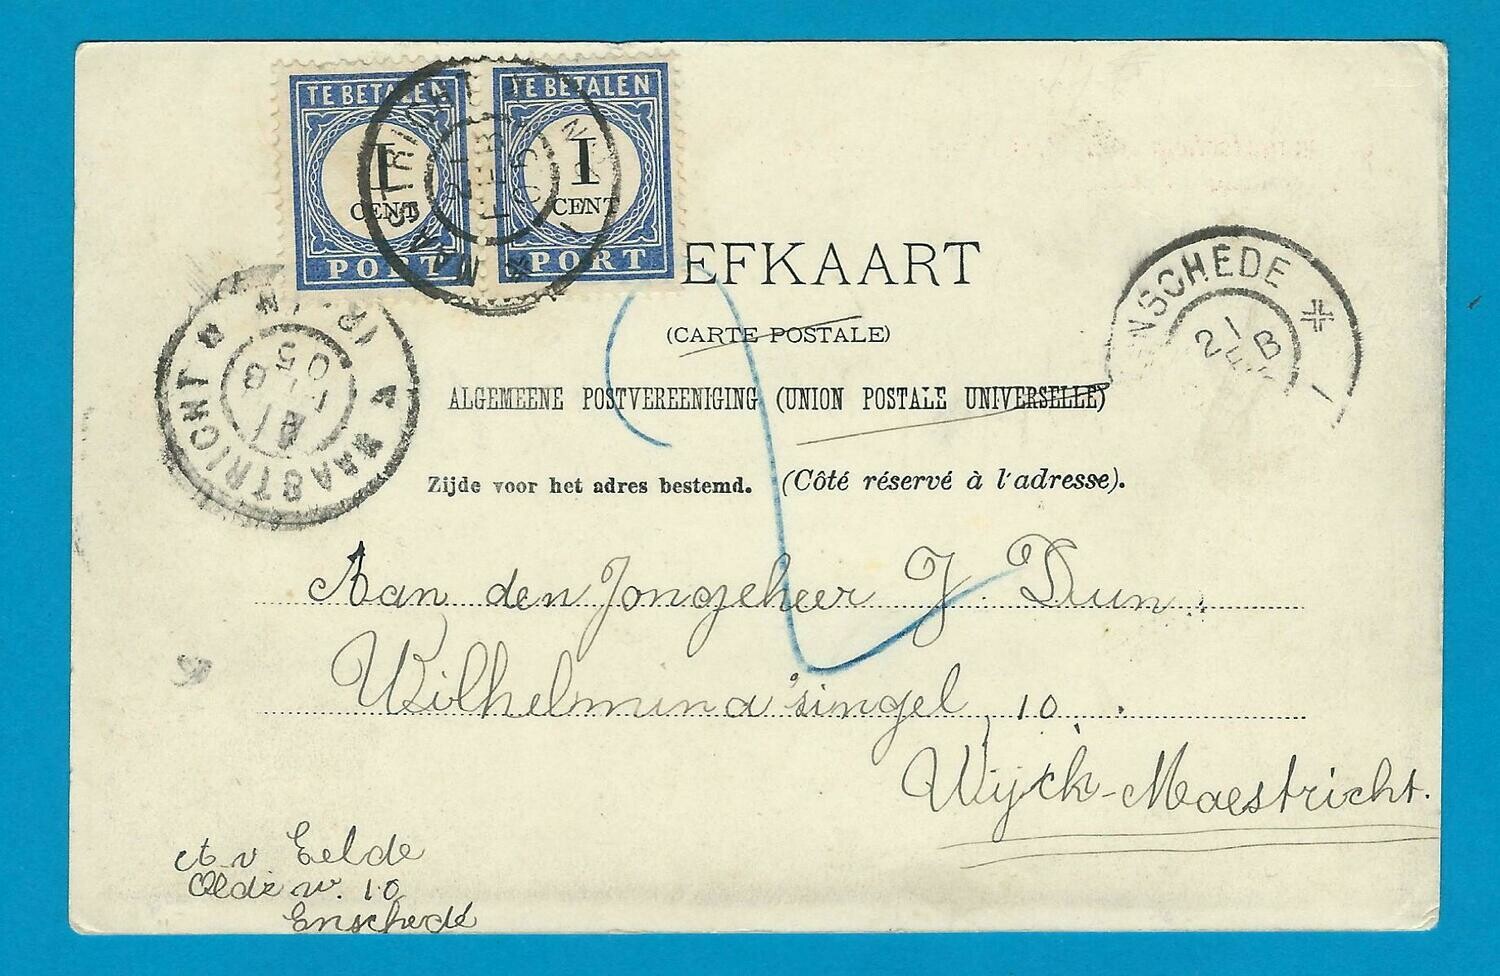 TE BETALEN TE BETALEN
1 1
CENT CENT
PORT PORT
MAASTRICHT
21
FEB
05
EFKAART
ENSCHEDE
21
(CARTE POSTALE)
MAASTRICHT
05
ALGEMEENE POSTVEREENIGING (UNION POSTALE UNIVERSELLE)
Zijde voor het adres bestemd. (Côté réservé à l'adresse).
2
Aan den Jongeheer J. Dun.
Wilhelmina singel 10.
Wijck-Maestricht.
v Eelde
w. 10
Enschedé